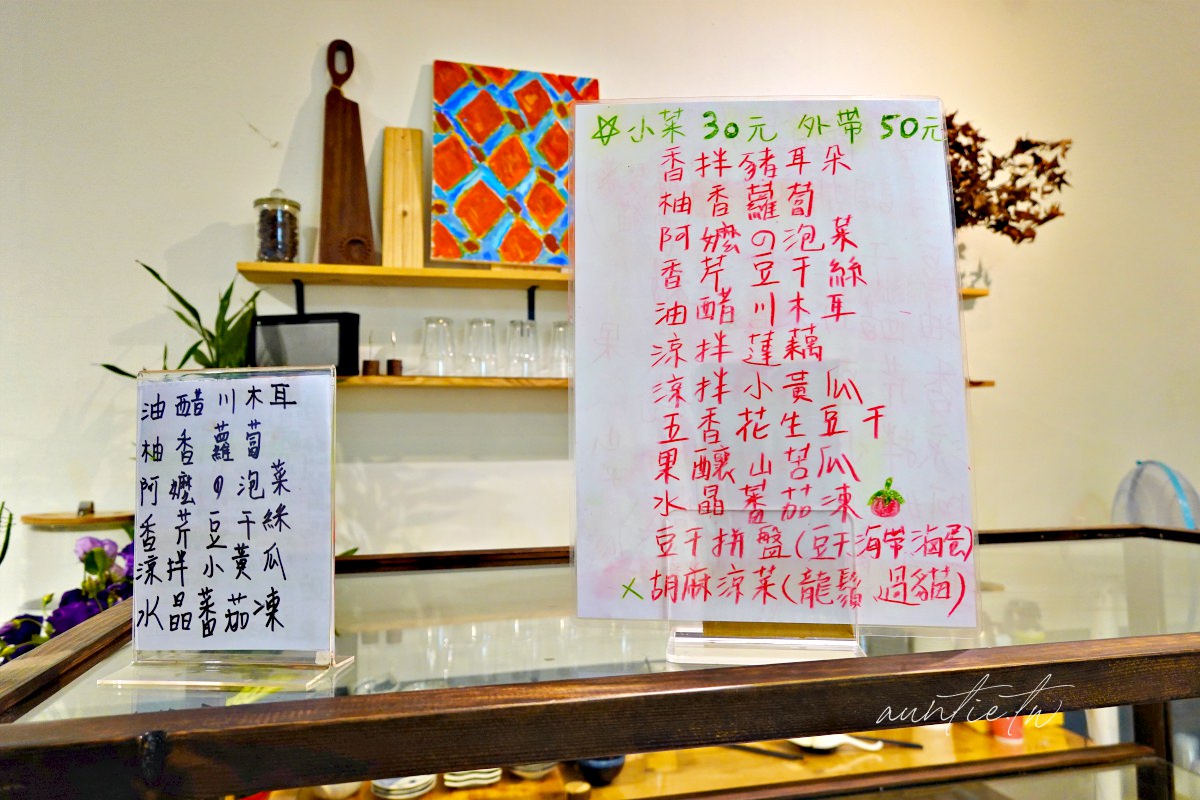 油醋川木耳
柚香蘿蔔
阿嬤の泡菜
香芹豆干絲
涼拌小黃瓜
水晶蕃茄凍
☆小菜 30元 外帶 50元
香拌豬耳朵
柚香蘿蔔
阿嬤の泡菜
香芹豆干絲
油醋川木耳
涼拌蓮藕
涼拌小黃瓜
五香花生豆干
果釀山苦瓜
水晶蕃茄凍
豆干拼盤(豆干海帶滷蛋)
x胡麻涼菜(龍鬚 過貓)
auntietw